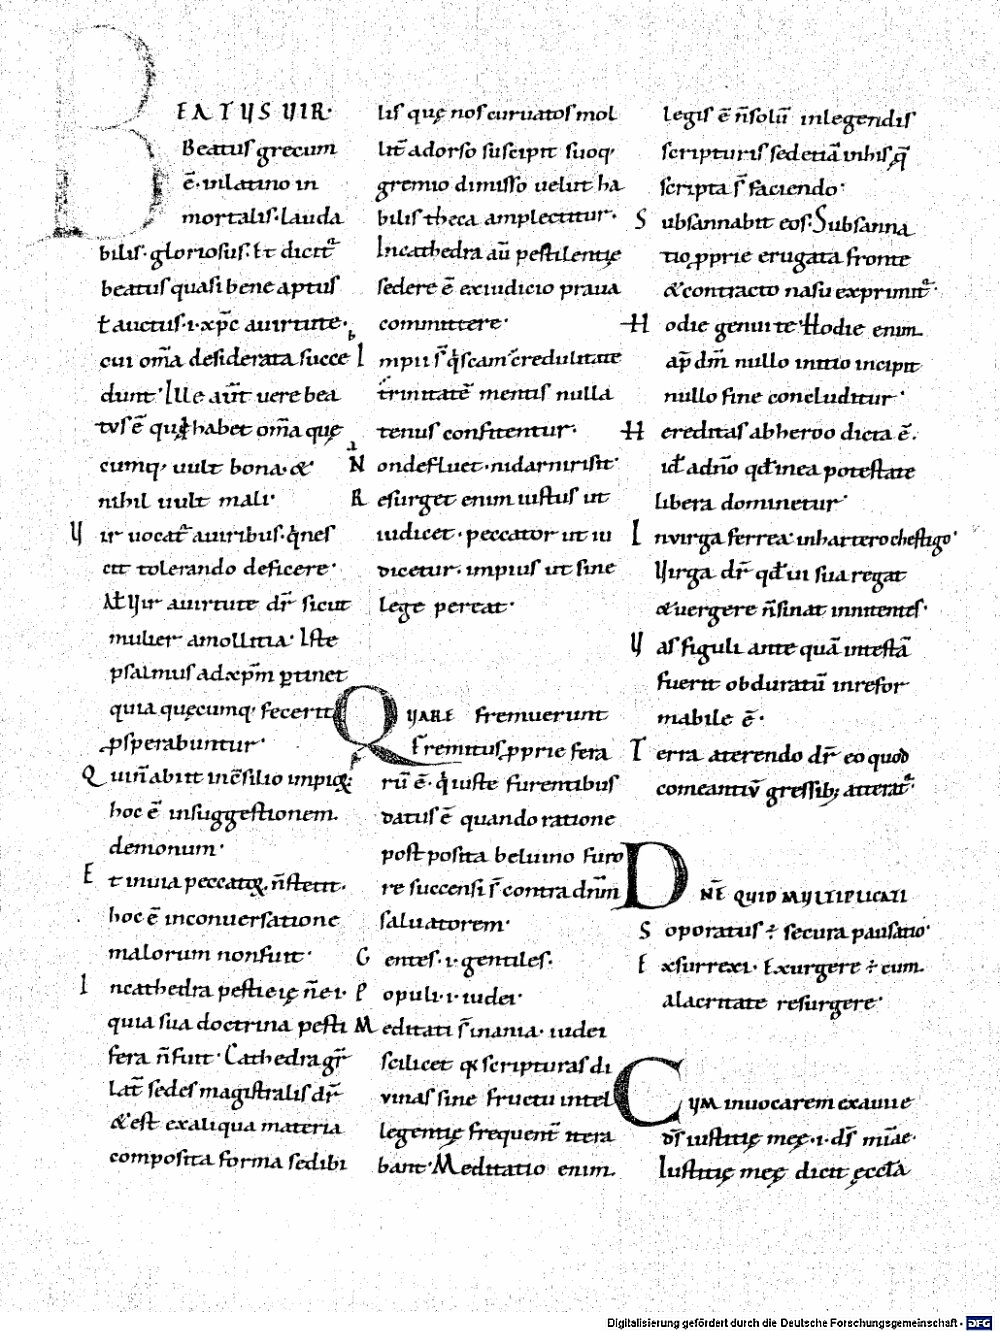 BEATUS UIR·
Beatus grecum
ē· inlatino in
mortalis· lauda
bilis· gloriosus· Et dicit᷑
beatus quasi bene aptus
ł auctus· i· xp̄c auirtute·
cui om̄a desiderata succe
dunt· Ille aut̄ uere bea
tus ē qui habet om̄a quę
cumq; uult bona· &
nihil uult mali·
Uir uocat᷑ auiribus· q̇ nes
cit tolerando deficere·
Ał Uir auirtute dr̄ sicut
mulier amollitia· Iste
psalmus adxp̄m ꝑtinet
quia quęcumq; fecerit
ꝓsperabuntur·
Quin̄abiit incōsilio impioꝝ
hoc ē insuggestionem
demonum·
Et inuia peccatoꝝ n̄stetit·
hoc ē inconuersatione
malorum nonfuit·
Incathedra pesti
quia sua doctrina pesti
fera n̄fuit· Cathedra gr̄
lat̄ sedes magistralis dr̄
&est exaliqua materia
composita forma sedibi
lis quę nos curuatos mol
lit̄ adorso suscipit suoq;
gremio dimisso uelut ha
bilis theca amplectitur·
Incathedra au̅ pestilentię
sedere ē exiudicio praua
committere·
Impii s̄ q̇ s̄cam credulitate
trinitatē mentis nulla
tenus confitentur·
Nondefluet· nidarnirisit·
Resurget enim iustus ut
iudicet· peccator ut iu
dicetur· impius ut sine
lege pereat·
QUARE fremuerunt
Fremitus ꝓprie fera
rū ē· q̇ iuste furentibus
datus ē quando ratione
post posita beluino furo
re succensi s̄ contra dn̄m
saluatorem·
Gentes· i· gentiles·
Populi· i· iudei·
Meditati s̄ inania· iudei
scilicet qx scripturas di
uinas sine fructu intel
legentię frequent̄ itera
bant· Meditatio enim
legis ē n̄solū inlegendis
scripturis sed etiā inhis q̄
scripta s̄ faciendo·
Subsannabit eos· Subsanna
tio ꝓprie erugata fronte
&contracto nasu exprimit᷑·
Hodie genui te· Hodie enim
ap̄ dm̄ nullo initio incipit
nullo fine concluditur·
Hereditas abheroo dicta ē·
id̄ adn̄o qd̄ inea potestate
libera dominetur·
Inuirga ferrea· inhartero chestigo·
Uirga dr̄ qd̄ ui sua regat
&uergere n̄sinat innitentes·
Uas figuli ante quā intestā
fuerit obduratū inrefor
mabile ē·
Terra aterendo dr̄ eo quod
comeantiū gressib; atterat᷑·
DN̄E QUID MULTIPLICATI
Soporatus ÷ secura pausatio·
Exsurrexi· Exurgere ÷ cum
alacritate resurgere·
CUM inuocarem exauuie
ds̄ iustitię meę· i· ds̄ miae·
Iustitię meę dicit ęccła
Digitalisierung gefördert durch die Deutsche Forschungsgemeinschaft - DFG